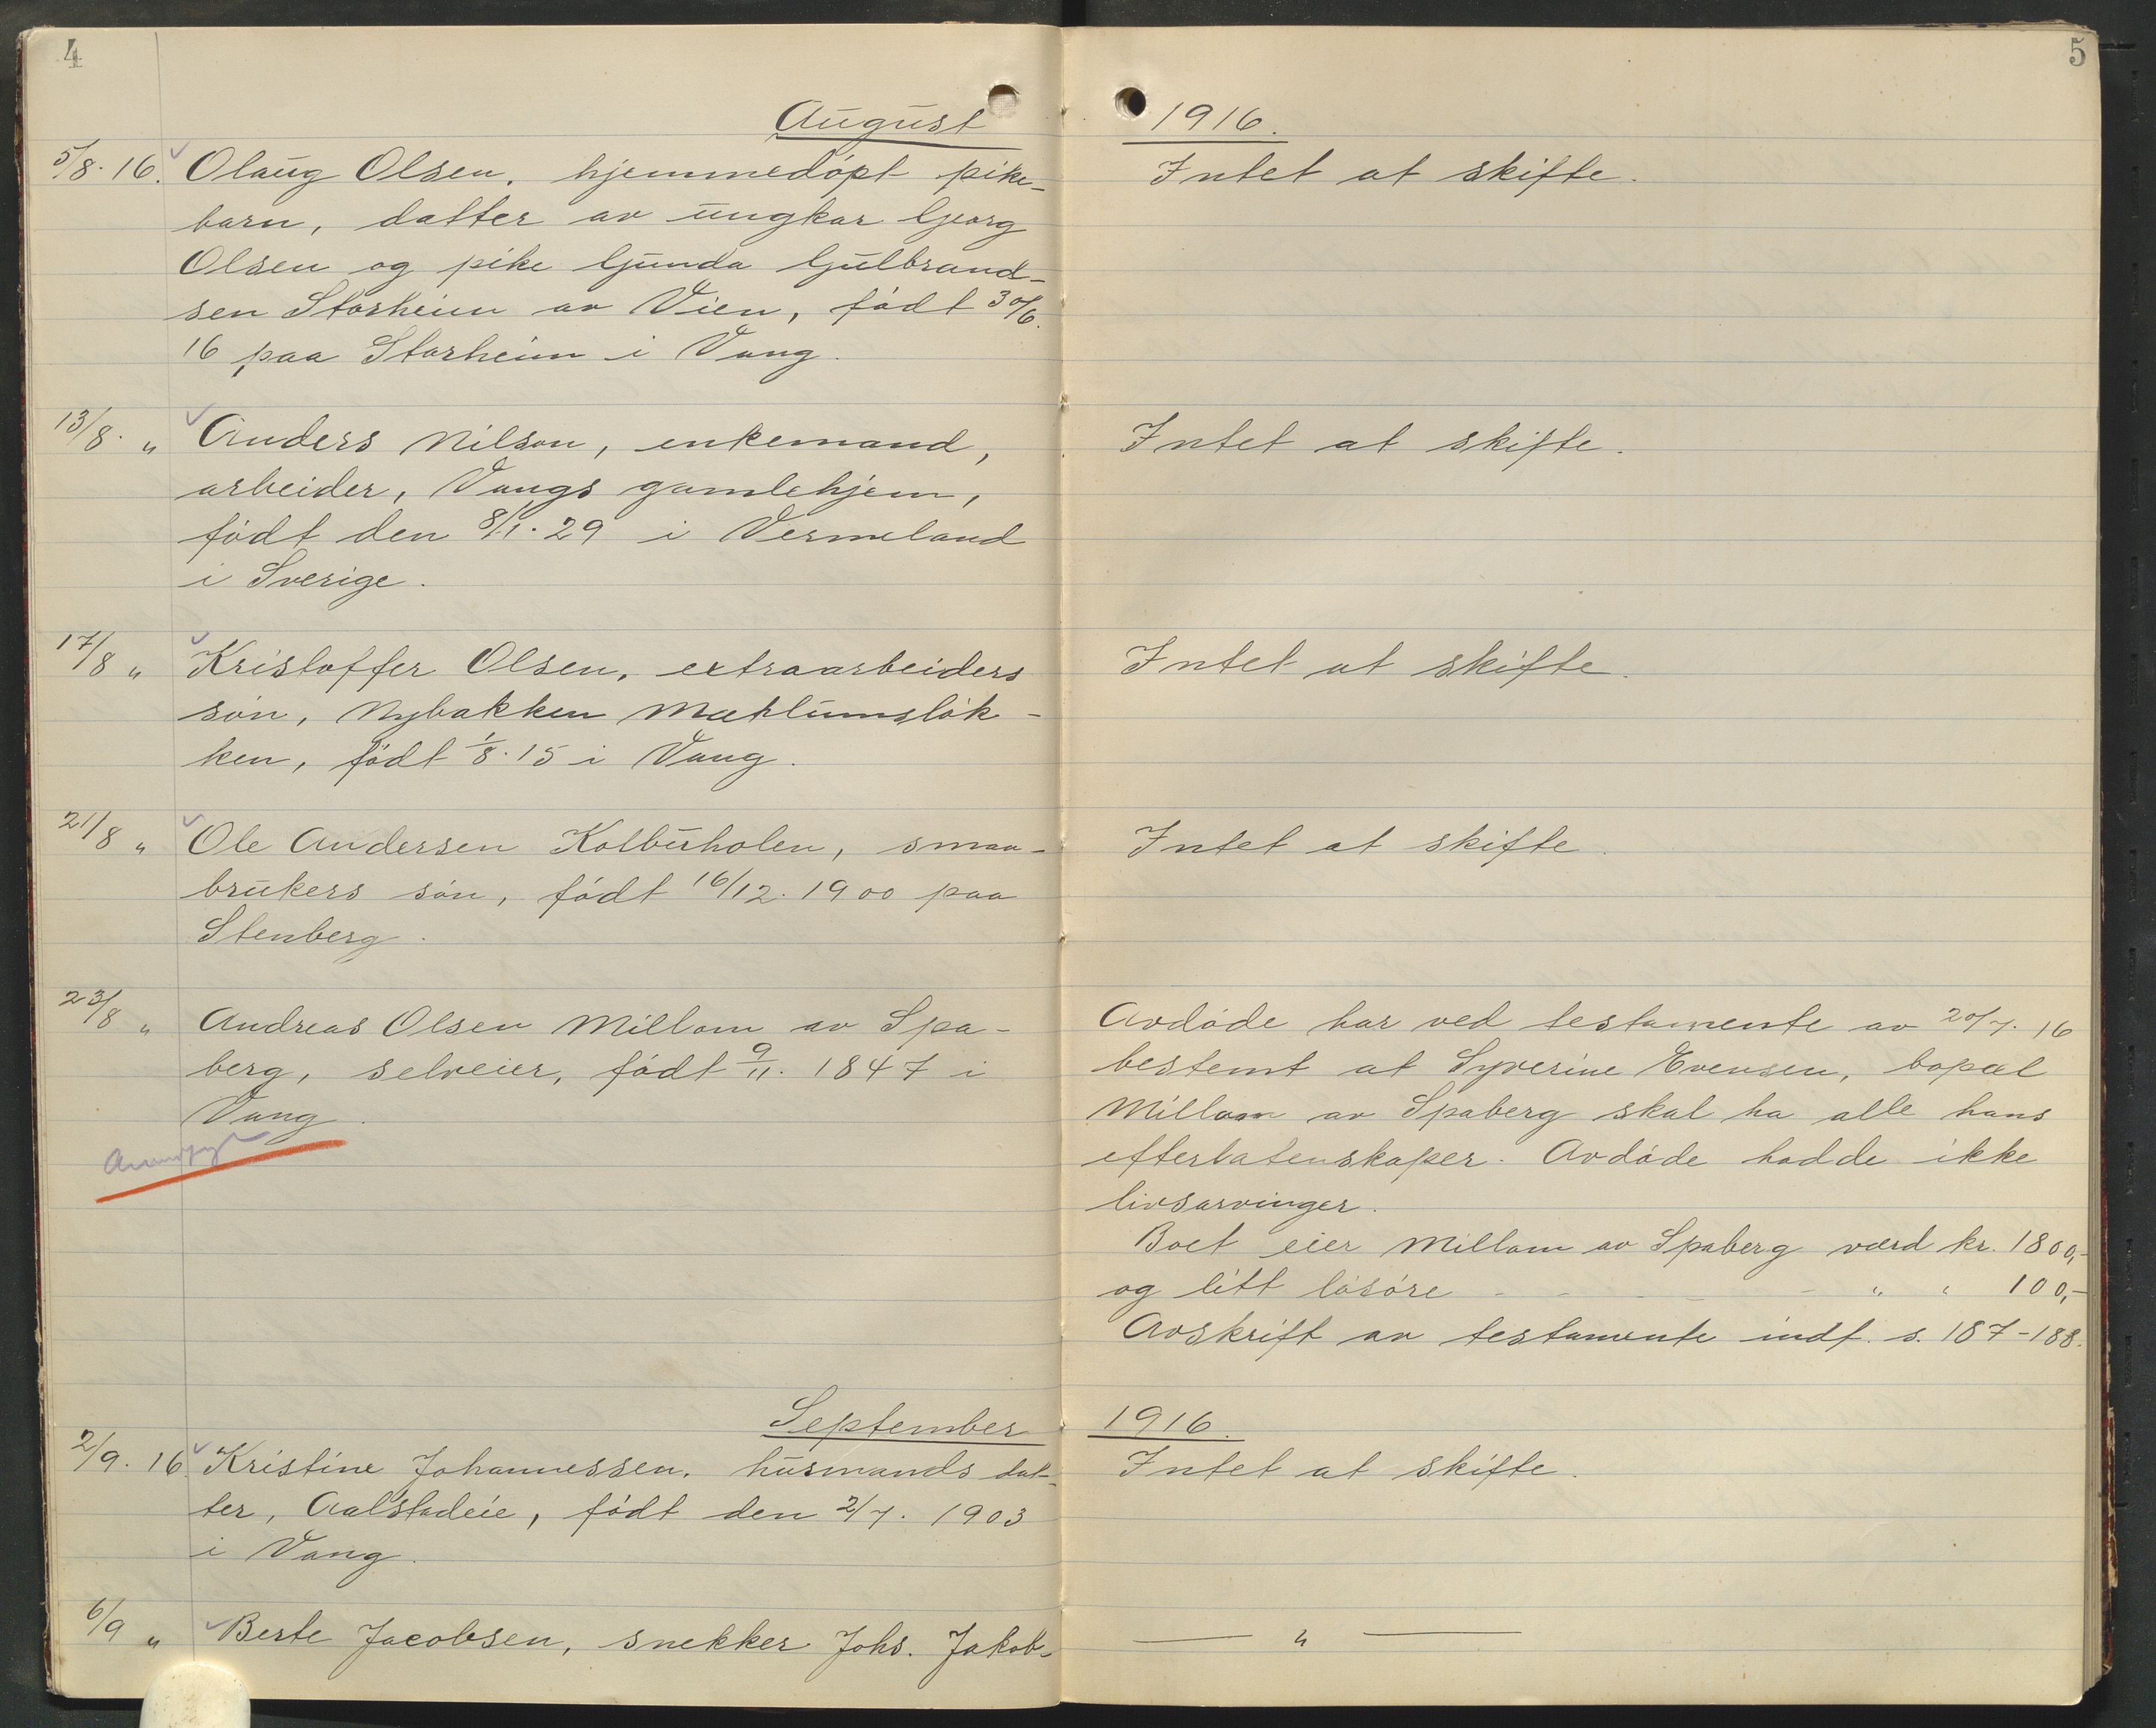 4
August
5/8. 16. Olaug Olsen, hjemmedöpt pike-
barn, datter av ungkar Georg
Olsen og pike Gunda Gulbrand-
sen Storheim av Vien, födt 30/6.
16 paa Storheim i Vang.
13/8. " Anders Nilson, enkemand,
arbeider, Vangs gamlehjem,
födt den 8/1. 29 i Vermeland
i Sverige.
17/8 " Kristoffer Olsen, extraarbeiders
sön, Nybakken Mæhlumslök-
ken, födt 1/8. 15 i Vang.
21/8 " Ole Andersen Kolbuholen, smaa-
brukers sön, födt 16/12. 1900 paa
Stenberg.
23/8 " Andreas Olsen Millom av Spa-
berg, selveier, födt 9/11. 1847 i
Vang.
September
2/9. 16. Kristine Johannessen, husmands dat-
ter, Aalstadeie, födt den 2/7. 1903
i Vang.
6/9 " Berte Jacobsen, snekker Johs. Jakob-
5
1916.
Intet at skifte.
Intet at skifte.
Intet at skifte.
Intet at skifte.
Avdöde har ved testamente av 20/7. 16
bestemt at Syverine Evensen, bopæl
Millom av Spaberg skal ha alle hans
efterlatenskaper. Avdöde hadde ikke
livsarvinger.
Boet eier Millom av Spaberg værd kr. 1800,-
og litt lösöre - - - - - " " 100,-
Avskrift av testamente indf. s. 187-188.
1916.
Intet at skifte.
— " —